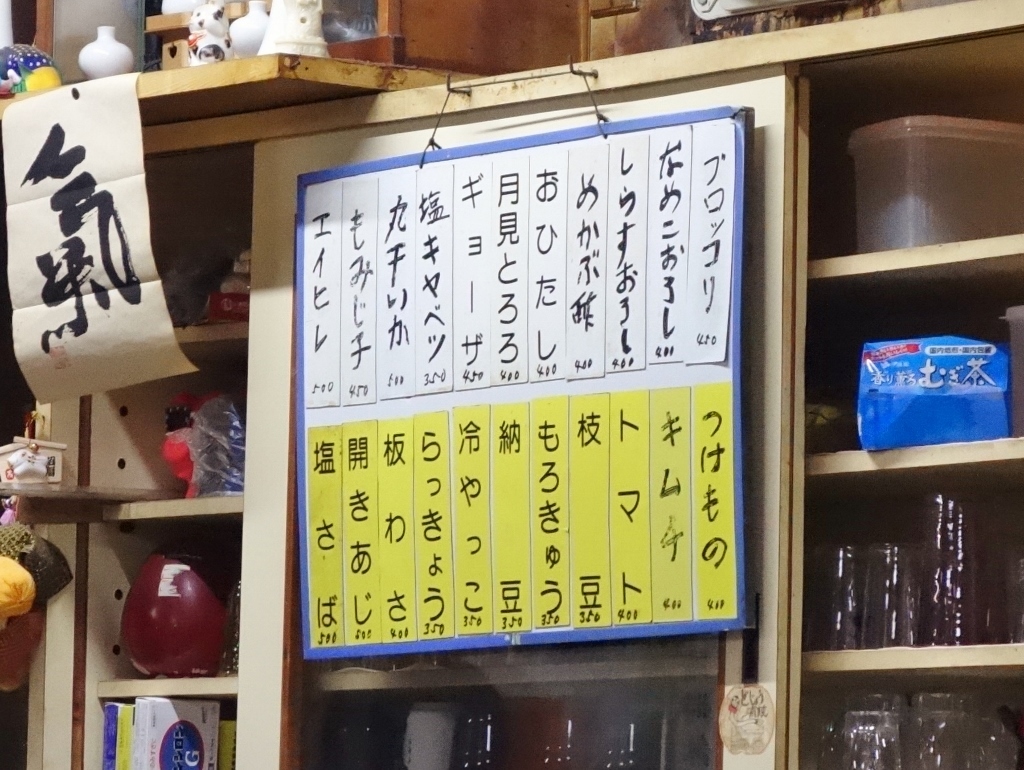 ブロッコリ 450
なめこおろし 400
しらすおろし 400
めかぶ酢 400
おひたし 400
月見とろろ 400
ギョーザ 450
塩キャベツ 350
丸干いか 500
もみじ子 450
エイヒレ 500
つけもの 400
キムチ 400
トマト 400
枝豆 350
もろきゅう 350
納豆 350
冷やっこ 350
らっきょう 350
板わさ 400
開きあじ 500
塩さば 500
氣
国内焙煎・国内包装
香り薫るむぎ茶